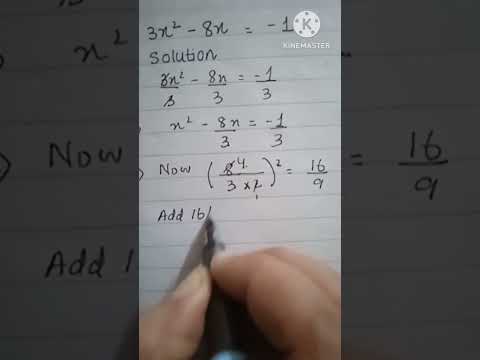 3x² - 8x = -1
KINEMASTER
Solution
3x²/3 - 8x/3 = -1/3
x² - 8x/3 = -1/3
Now (8 4/3 × 2 1)² = 16/9
Add 16/